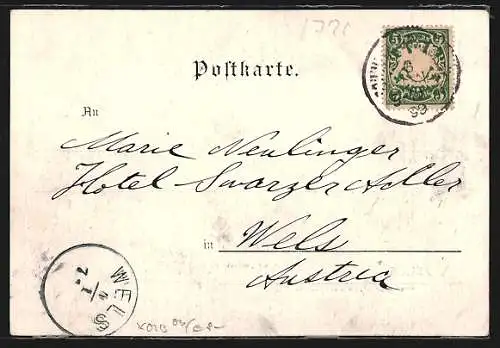 1721
Postkarte.
5 5
An
Marie Neulinger
Hotel Swarzer Adler
in Wels
Austria
WELS